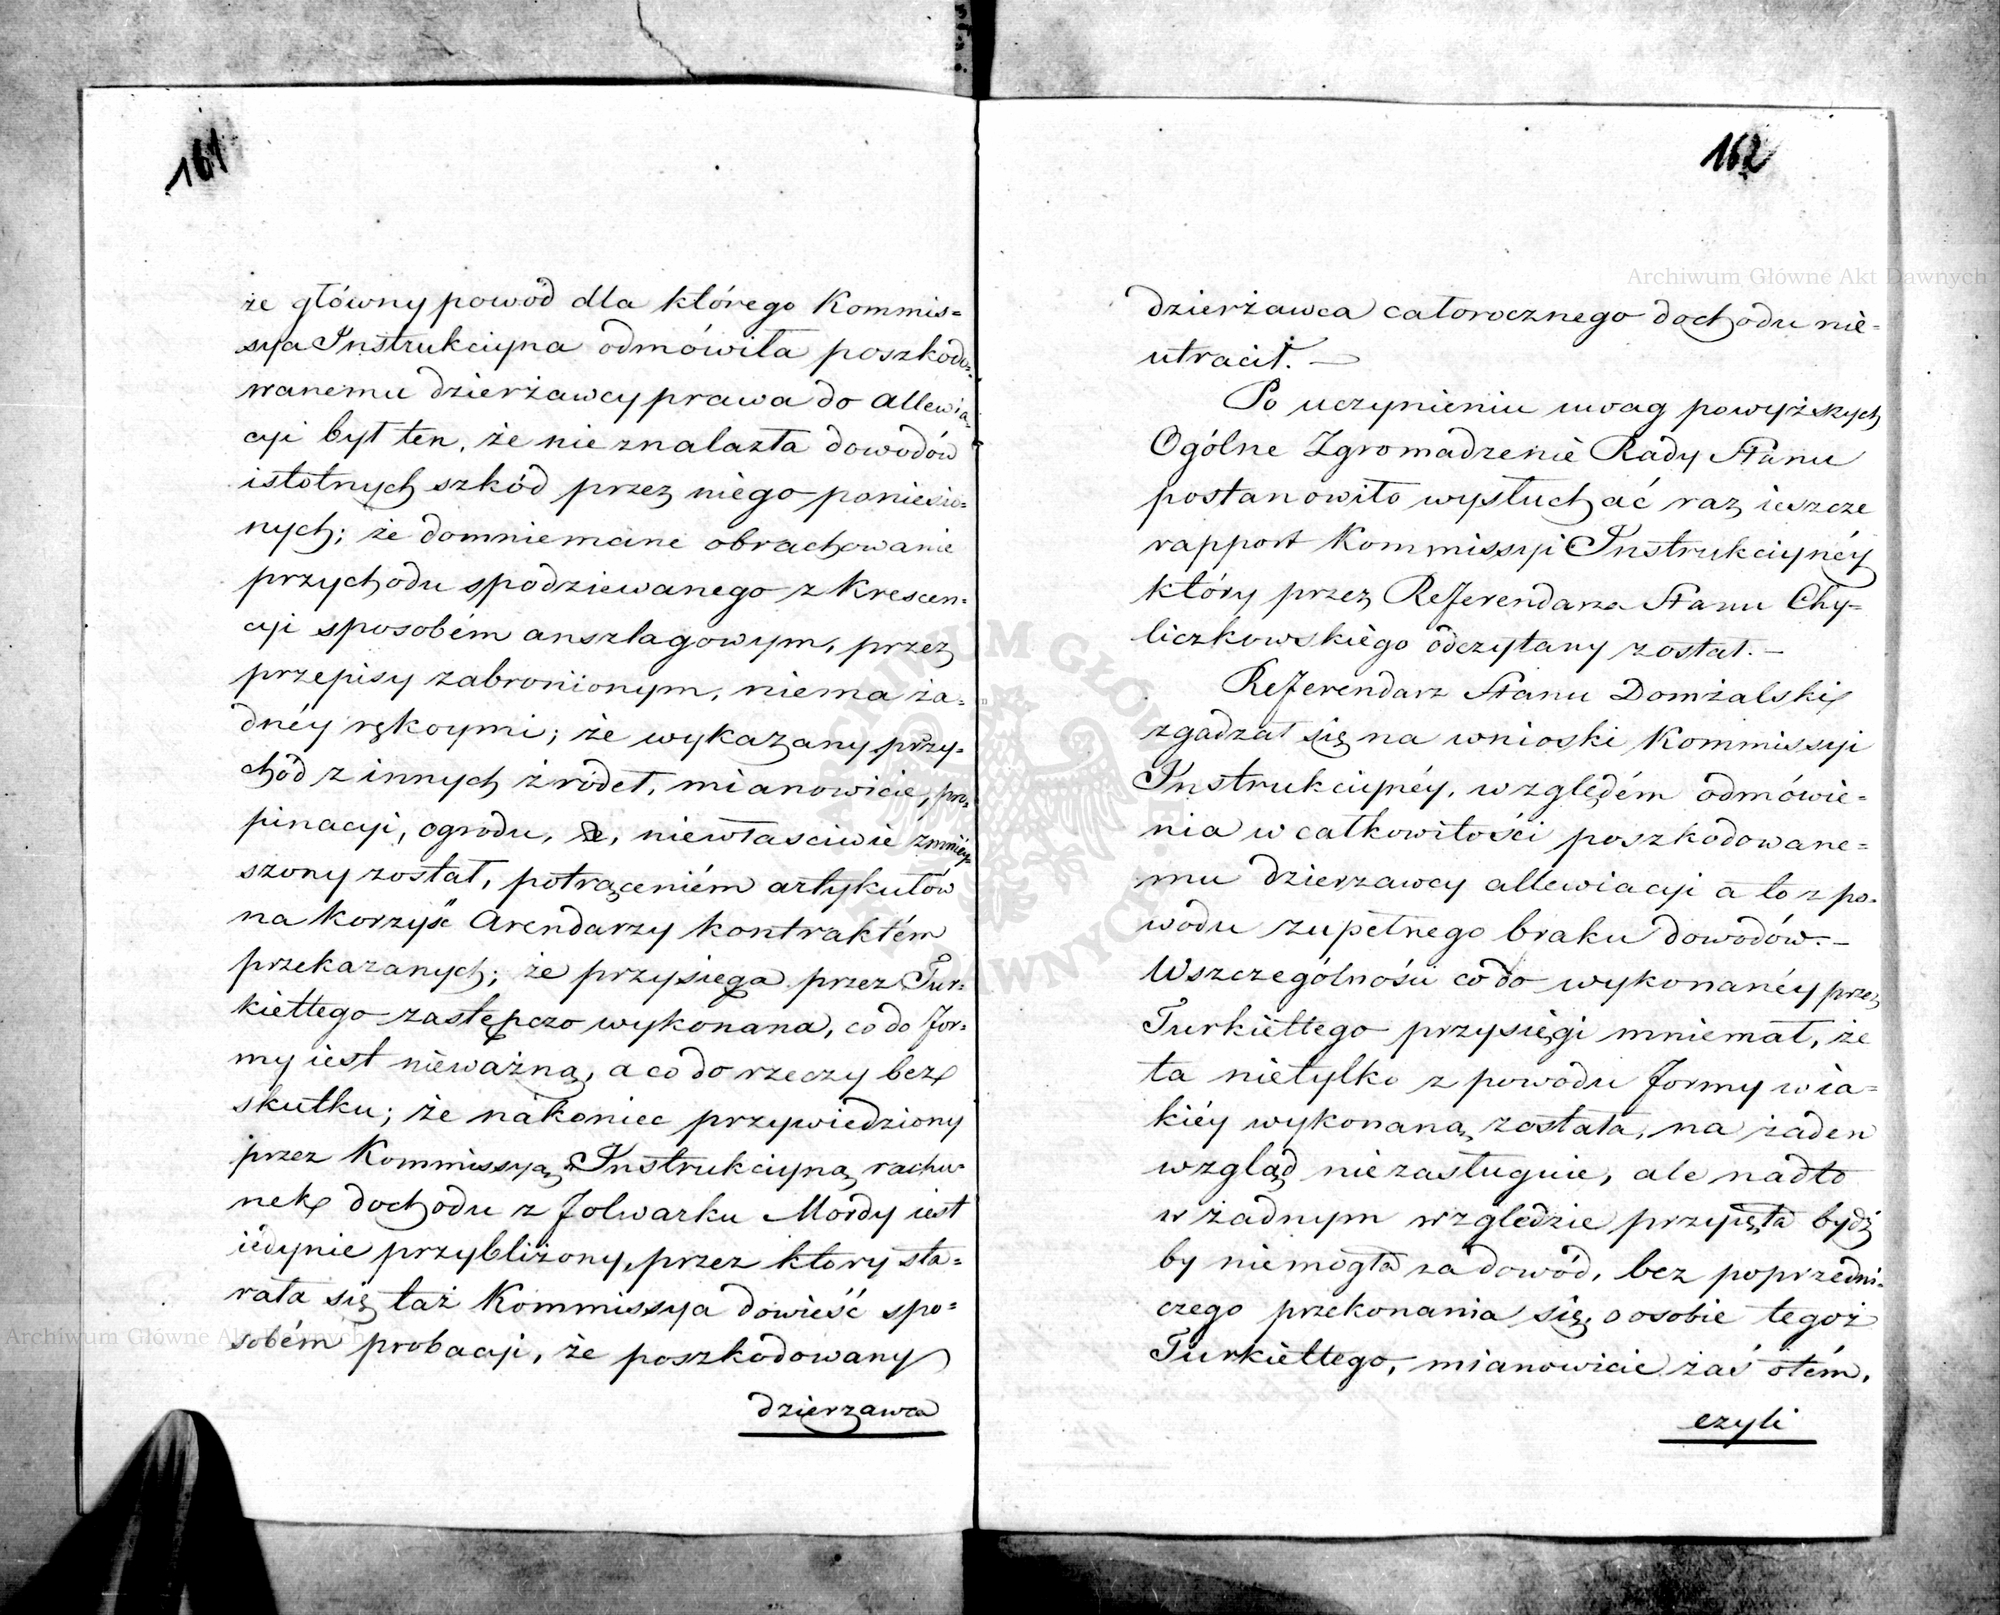 161
że główny powód dla którego Kommis=
sya Instrukcyina odmówiła poszkodo=
wanemu dzierżawcy prawa do allewia=
cyi był ten, że nie znalazła dowodów
istotnych szkód przez niego poniesio=
nych; że domniemane obrachowanie
przychodu spodziewanego z Krescen=
cyi sposobém anszlagowym, przez
przepisy zabronionym, niema ża=
dnéy rękoymi; że wykazany przy=
chód z innych źródeł, mianowicie, pro=
pinacyi, ogrodu, &c, niewłaściwie zmniéy=
szony został, potrąceniém artykułów
na korzyść Arendarzy kontraktém
przekazanych; że przysięga przez Tur=
kiełłego zastępczo wykonana, co do for=
my iest nieważną, a co do rzeczy bez
skutku; że nakoniec przywiedziony
przez Kommissyą Instrukcyiną rachu=
nek dochodu z folwarku Mordy iest
iedynie przybliżony, przez który sta=
rała się taż Kommissya dowieść spo=
sobém probacyi, że poszkodowany
dzierzawca
162
dzierżawca całorocznego dochodu nie=
utracił. —
Po uczynieniu uwag powyższych
Ogólne Zgromadzenie Rady Stanu
postanowiło wysłuchać raz ieszcze
rapport Kommissyi Instrukcyinéy
który przez Referendarza Stanu Chy=
liczkowskiego odczytany został. —
Referendarz Stanu Domżalski
zgadzał się na wnioski Kommissyi
Instrukcyinéy, względém odmówie=
nia w całkowitości poszkodowane=
mu dzierzawcy allewiacyi a to z po=
wodu zupełnego braku dowodów. —
Wszczególności co do wykonanéy przez
Turkiełłego przysięgi mniemał, że
ta nietylko z powodu formy w ia=
kiéy wykonaną została, na żaden
wzgląd niezasługuie, ale nadto
w żadnym względzie przyiętą bydź
by niemogła za dowód, bez poprzedni=
czego przekonania się o osobie tegoż
Turkiełłego, mianowicie zaś o tém,
czyli
Archiwum Główne Akt Dawnych
Archiwum Główne Akt Dawnych
ARCHIWUM GŁÓWNE AKT DAWNYCH